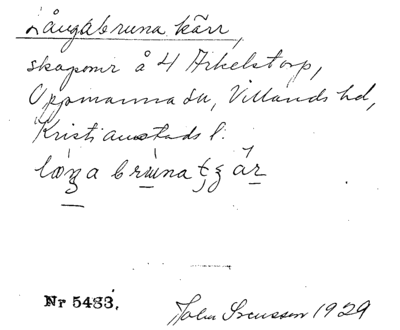 Långabruna kärr,
skapomr å 4 Arkelstorp,
Oppmanna sn, Villands hd,
Kristianstads l.
Nr 5483.
John Svensson 1929